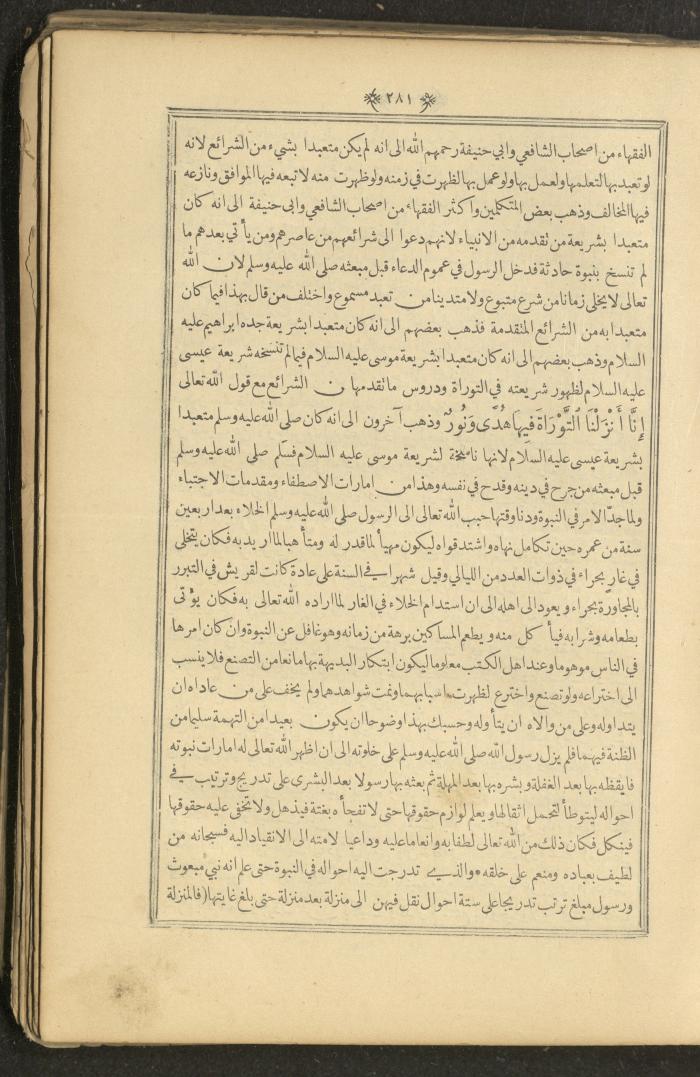 ٢٨١
الفقهاء من اصحاب الشافعي وابي حنيفة رحمهم الله الى انه لم يكن متعبدا بشيء من الشرائع لانه
لو تعبد بها لتعلمها ولعمل بها ولو عمل بها لظهرت في زمنه ولو ظهرت منه لاتبعه فيها الموافق ونازعه
فيها المخالف وذهب بعض المتكلمين واكثر الفقهاء من اصحاب الشافعي وابى حنيفة الى انه كان
متعبدا بشريعة من تقدمه من الانبياء لانهم دعوا الى شرائعهم من عاصرهم ومن يأتي بعدهم ما
لم تنسخ بنبوة حادثة فدخل الرسول في عموم الدعاء قبل مبعثه صلى الله عليه وسلم لان الله
تعالى لا يخلى زمانا من شرع متبوع ولا متدينا من تعبد مسموع واختلف من قال بهذا فيما كان
متعبدا به من الشرائع المتقدمة فذهب بعضهم الى انه كان متعبدا بشريعة جده ابراهيم عليه
السلام وذهب بعضهم الى انه كان متعبدا بشريعة موسى عليه السلام فيما لم تنسخه شريعة عيسى
عليه السلام لظهور شريعته في التوراة ودروس ما تقدمها من الشرائع مع قول الله تعالى
إِنَّا أَنْزَلْنَا التَّوْرَاةَ فِيهَا هُدًى وَنُورٌ وذهب آخرون الى انه كان صلى الله عليه وسلم متعبدا
بشريعة عيسى عليه السلام لانها ناسخة لشريعة موسى عليه السلام فسلم صلى الله عليه وسلم
قبل مبعثه من جرح في دينه وقدح في نفسه وهذا من امارات الاصطفاء ومقدمات الاجتباء
ولما جدّ الامر في النبوة ودنا وقتها حبب الله تعالى الى الرسول صلى الله عليه وسلم الخلاء بعد اربعين
سنة من عمره حين تكامل نهاه واشتد قواه ليكون مهيأ لما قدر له ومتأهبا لما اريد به فكان يتخلى
في غار بحراء في ذوات العدد من الليالي وقيل شهرا في السنة على عادة كانت لقريش في التبرر
بالمجاورة بحراء ويعود الى اهله الى ان استدام الخلاء في الغار لما اراده الله تعالى به فكان يؤتى
بطعامه وشرابه فيأكل منه ويطعم المساكين برهة من زمانه وهو غافل عن النبوة وان كان امرها
في الناس موهوما وعند اهل الكتب معلوما ليكون ابتكار البديهة بها مانعا من التصنع فلا ينسب
الى اختراعه ولو تصنع واخترع لظهرت اسبابهما ونمت شواهدهما ولم يخف على من عاداه ان
يتداوله وعلى من والاه ان يتأوله وحسبك بهذا وضوحا ان يكون بعيدا من التهمة سليما من
الظنة فيهما فلم يزل رسول الله صلى الله عليه وسلم على خلوته الى ان اظهر الله تعالى له امارات نبوته
فايقظه بها بعد الغفلة وبشره بها بعد المهلة ثم بعثه بها رسولا بعد البشرى على تدريج وترتيب في
احواله ليتوطأ لتحمل اثقالها ويعلم لوازم حقوقها حتى لا تفجأه بغتة فيذهل ولا تخفى عليه حقوقها
فينكل فكان ذلك من الله تعالى لطفا به وانعاما عليه وداعيا لامته الى الانقياد اليه فسبحانه من
لطيف بعباده ومنعم على خلقه * والذي تدرجت اليه احواله في النبوة حتى علم انه نبي مبعوث
ورسول مبلغ ترتب تدريجا على ستة احوال نقل فيهن الى منزلة بعد منزلة حتى بلغ غايتها (فالمنزلة